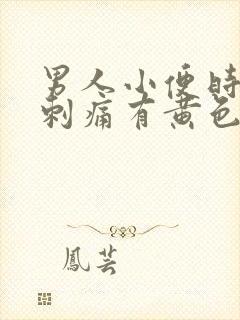 男人小便时
刺痛有黄色
鳳芸